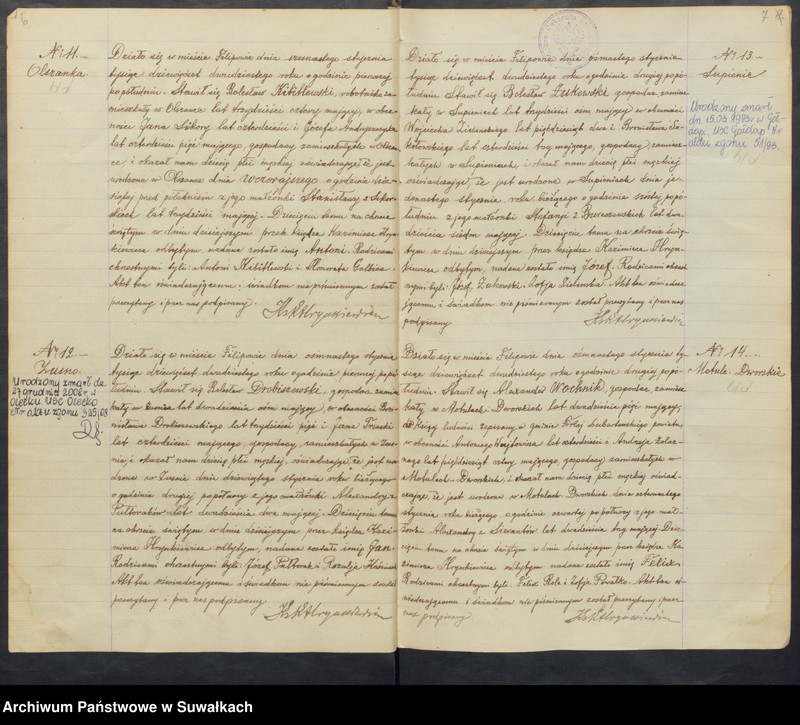 6
Nr 11.
Olszanka.
Działo się w mieście Filipowie dnia stycznia
tysiąc dziewięćset dwudziestego roku o godzinie pierwszej
po południu. Stawił się Bolesław robotnik za-
mieszkały w Olszance lat trzydzieści cztery mający, w obec-
ności Jana Sikory lat czterdzieści i Józefa
lat czterdzieści pięć mających, gospodarzy zamieszkałych w Olszan-
ce, i okazał nam dziecię płci męskiej oświadczając że jest
urodzone w Olszance dnia wczorajszego o godzinie dzie-
siątej przed południem z jego małżonki Stanisławy z Sikor-
skich lat trzydzieści mającej. Dziecięciu temu na chrzcie
świętym w dniu dzisiejszym przez księdza Kazimierza Hryn-
kiewicza odbytym, nadane zostało imię Antoni. Rodzicami
chrzestnymi byli: Antoni i
Akt ten oświadczającemu i świadkom niepiśmiennym został
przeczytany i przez nas podpisany.
Ks K Hrynkiewicz
Nr 12.
Zusno
Urodzony zmarł dn.
27 grudnia 2008 r. w
Olecku. USC Olecko
Nr aktu zgonu 325/08
Działo się w mieście Filipowie dnia ośmnastego stycznia
tysiąc dziewięćset dwudziestego roku o godzinie pierwszej popo-
łudniu. Stawił się Bolesław Drobiszewski, gospodarz zamiesz-
kały w Zusnie lat dwadzieścia ośm mający, w obecności Bro-
nisława Drobiszewskiego lat trzydzieści pięć i Jana
lat czterdzieści mającego, gospodarzy, zamieszkałych w Zus-
nie i okazał nam dziecię płci męskiej, oświadczając, że jest uro-
dzone w Zusnie dnia dziewiątego stycznia roku bieżącego
o godzinie drugiej popołudniu z jego małżonki Aleksandry z
Półtoraków lat dwadzieścia dwa mającej. Dziecięciu temu
na chrzcie świętym w dniu dzisiejszym przez księdza Kazi-
mierza Hrynkiewicza odbytym, nadane zostało imię Jan.
Rodzicami chrzestnymi byli: Józef Półtorak i Rozalja
Akt ten oświadczającemu i świadkom niepiśmiennym został
przeczytany i przez nas podpisany.
Ks K Hrynkiewicz
7
Nr 13.
Supienie
Urodzony zmarł
dn. 15.03.1993 w Goł-
dapi, USC Gołdap Nr
aktu zgonu 51/93.
Działo się w mieście Filipowie dnia ośmnastego stycznia
tysiąc dziewięćset dwudziestego roku o godzinie drugiej popo-
łudniu. Stawił się Bolesław Żukowski gospodarz zamiesz-
kały w Supieniach lat trzydzieści ośm mający w obecności
Wojciecha Zielinskiego lat pięćdziesiąt dwa i Bronisława So-
kołowskiego lat czterdzieści trzy mającego, gospodarzy zamiesz-
kałych w Supieniach i okazał nam dziecię płci męskiej
oświadczając, że jest urodzone w Supieniach dnia je-
denastego stycznia, roku bieżącego o godzinie szóstej popo-
łudniu z jego małżonki Stefanji z lat dwa-
dzieścia siedm mającej. Dziecięciu temu na chrzcie świę-
tym w dniu dzisiejszym przez księdza Kazimierza Hryn-
kiewicza odbytym, nadane zostało imię Józef. Rodzicami chrzest-
nymi byli: Józef Żukowski i Zofja Zielinska. Akt ten oświad-
czającemu i świadkom niepiśmiennym został przeczytany i przez nas
podpisany.
Ks K Hrynkiewicz
Nr 14.
Motule-Dworskie
Działo się w mieście Filipowie dnia ośmnastego stycznia ty-
siąc dziewięćset dwudziestego roku o godzinie drugiej popo-
łudniu. Stawił się Alexander Wochnik, gospodarz, zamiesz-
kały w Motulach-Dworskich lat dwadzieścia pięć mający,
do Księgi ludności zapisany w gminie Wólce Lubartowskiego powiatu
w obecności Antoniego Wojtowicza lat czterdzieści i Andrzeja
lat pięćdziesiąt cztery mającego, gospodarzy zamieszkałych w
Motulach-Dworskich, i okazał nam dziecię płci męskiej oświad-
czając, że jest urodzone w Motulach Dworskich dnia czternastego
stycznia roku bieżącego o godzinie czwartej popołudniu z jego mał-
żonki Alexandry z lat dwadzieścia trzy mającej. Dzie-
cięciu temu na chrzcie świętym w dniu dzisiejszym przez księdza Ka-
zimierza Hrynkiewicza odbytym nadane zostało imię Felix.
Rodzicami chrzestnymi byli: Felix Rola i Zofja Akt ten o-
świadczającemu i świadkom niepiśmiennym został przeczytany i przez
nas podpisany.
Ks K Hrynkiewicz
Archiwum Państwowe w Suwałkach